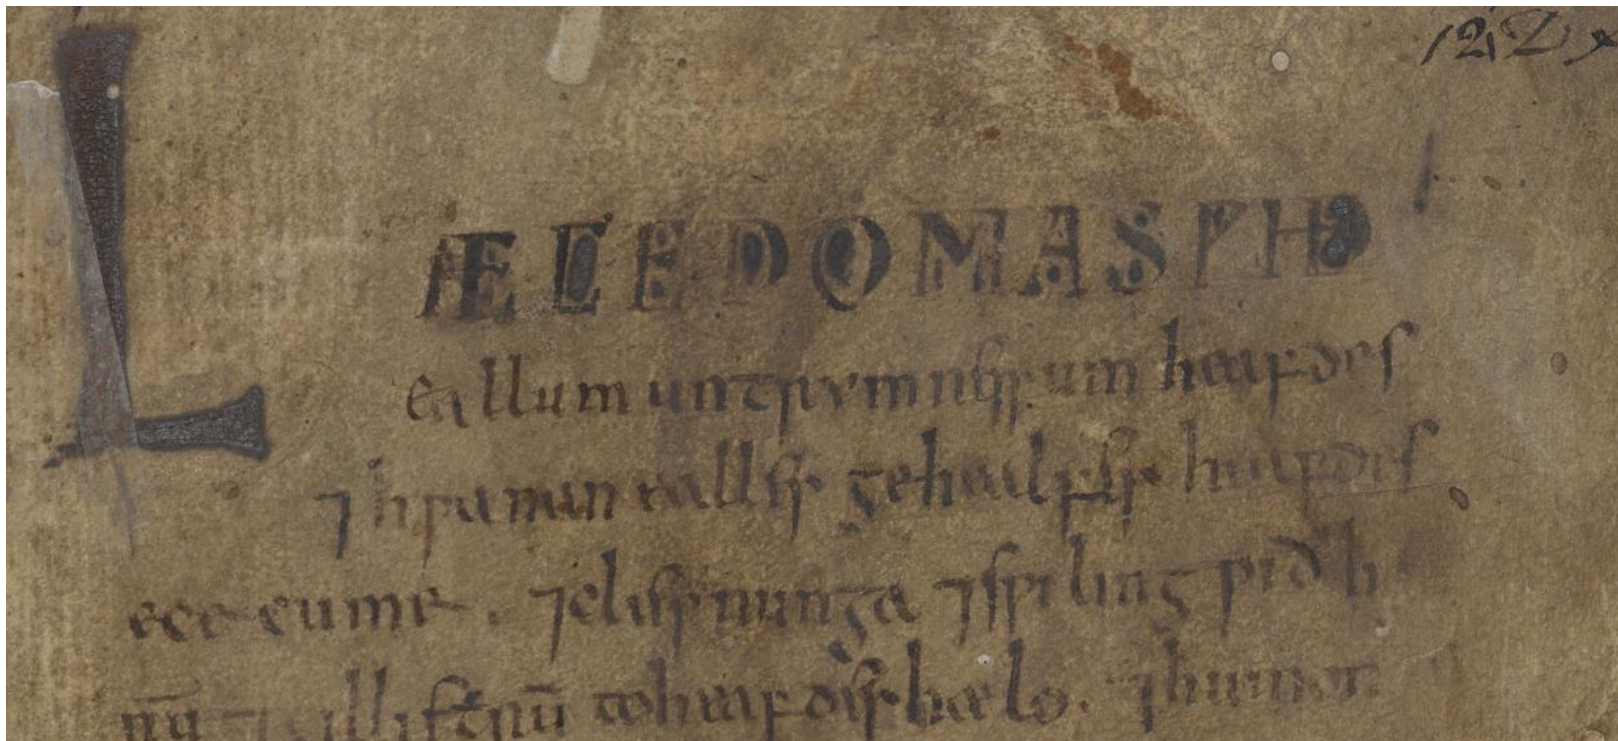 12 D x
LÆCEDOMAS ǷIÐ
eallum untrymnessum heafdes
⁊ hƿanan ealles ge healfes heafdes
ece cume . ⁊ clæsnunga ⁊ sƿiling ƿið h
rū ⁊ gillistrū to heafdes hælo . ⁊ hu mon